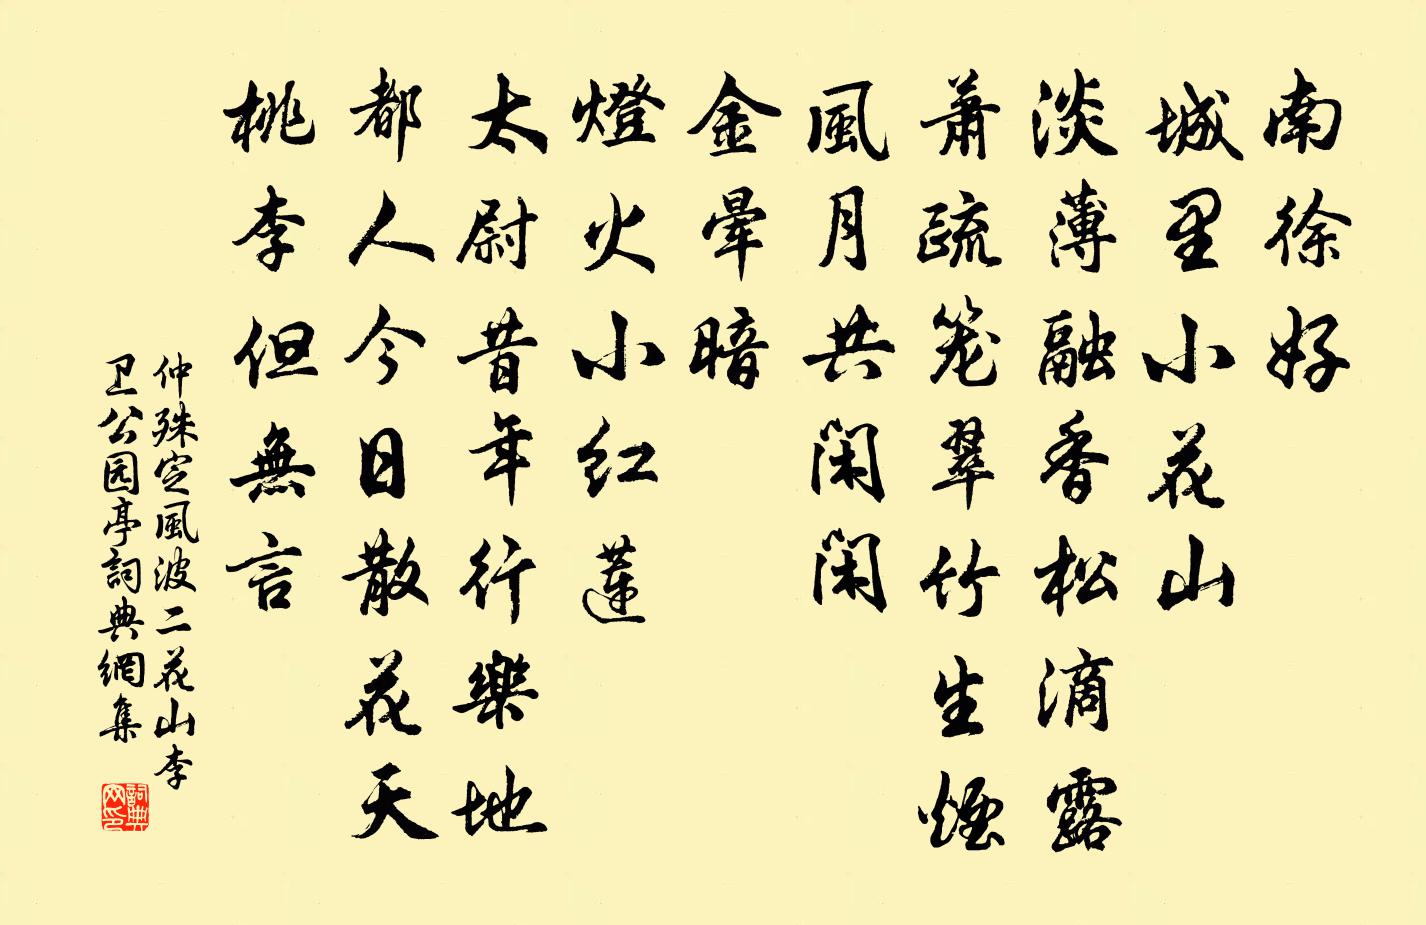 南徐好
城里小花山
淡薄融香松滴露
萧疏笼翠竹生煙
風月共闲闲
金暈暗
燈火小红蓮
太尉昔年行樂地
都人今日散花天
桃李但無言
仲殊定風波二花山李
卫公园亭詞典網集
詞典
网印